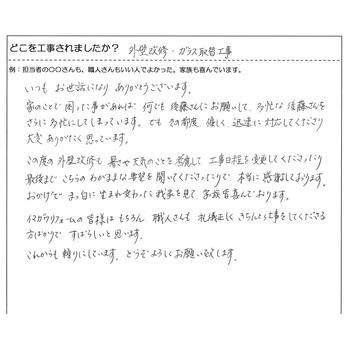 どこを工事されましたか? 外壁改修・ガラス取替工事
例:担当者の〇〇さんも、職人さんもいい人でよかった。家族も喜んでいます。
いつも お世話になり ありがとうございます。
家のことで 困った事があれば 何でも 後藤さんにお願いして、多忙な 後藤さんを
さらに 多忙にしてしまっています。でも その都度 優しく 迅速に 対応してくださり
大変 ありがたく 思っています。
この度の 外壁改修も 暑さや 天気のことを 考慮して 工事日程を 変更してくださったり
最後まで こちらの わがままな 要望を 聞いてくださったりで 本当に 感謝しております。
おかげで まっ白に 生まれ変わった 我家を 見て、家族皆 喜んでおります。
イマガワリフォームの 皆様は もちろん 職人さんも 礼儀正しく きちんと仕事をしてくださる
方ばかりで すばらしいと 思います。
これからも 頼りにしています。どうぞ よろしく お願い致します。